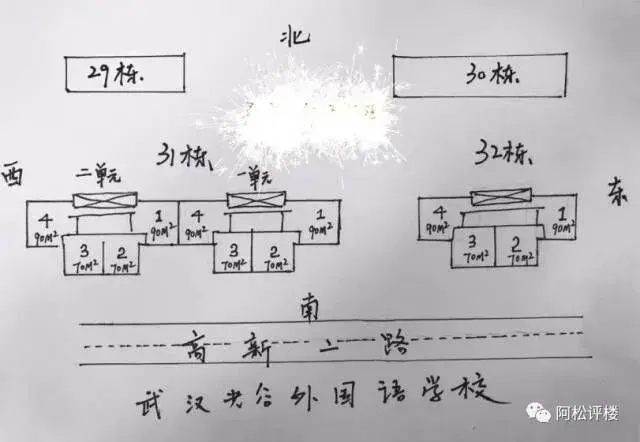 北
29栋
30栋
31栋
32栋
西
二单元
一单元
东
4
90M²
1
90M²
4
90M²
1
90M²
4
90M²
1
90M²
3
70M²
2
70M²
3
70M²
2
70M²
3
70M²
2
70M²
南
高新二路
武汉光谷外国语学校
阿松评楼